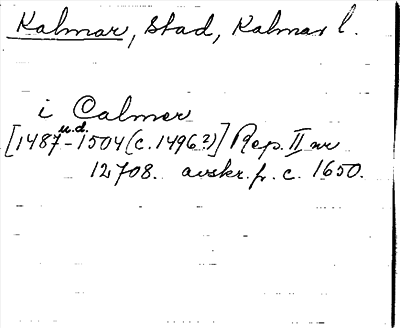 Kalmar, stad, Kalmar l.
i Calmer
u.d.
[1487-1504(c.1496?)] Rep. II nr
12708. avskr. fr. c. 1650.